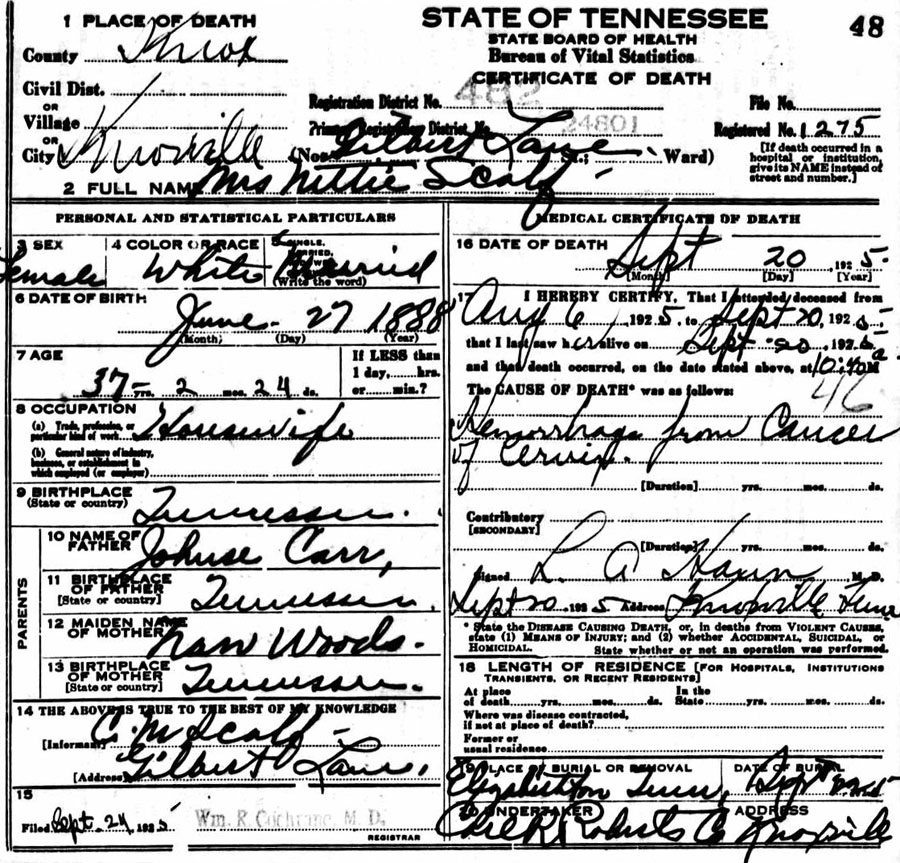 STATE OF TENNESSEE
48
STATE BOARD OF HEALTH
Bureau of Vital Statistics
CERTIFICATE OF DEATH
1 PLACE OF DEATH
County Knox
Civil Dist.
OR
Village
OR
City Knoxville (No. Gilbert Lane St.; Ward)
Registration District No. 482
Primary Registration District No. 24801
File No.
Registered No. 1275
[If death occurred in a
hospital or institution,
give its NAME instead of
street and number.]
2 FULL NAME Mrs Nettie Scalf
PERSONAL AND STATISTICAL PARTICULARS
3 SEX
Female
4 COLOR OR RACE
White
5 SINGLE,
Married
(Write the word)
6 DATE OF BIRTH
June 27 1888
(Month) (Day) (Year)
7 AGE
37 yrs. 2 mos. 24 ds.
If LESS than
1 day, hrs.
or min.?
8 OCCUPATION
(a) Trade, profession, or
particular kind of work Housewife
(b) General nature of industry,
business, or establishment in
which employed (or employer)
9 BIRTHPLACE
(State or country) Tennessee.
PARENTS
10 NAME OF
FATHER Johnse Carr,
11 BIRTHPLACE
OF FATHER
[State or country] Tennessee.
12 MAIDEN NAME
OF MOTHER Nan Woods.
13 BIRTHPLACE
OF MOTHER
[State or country] Tennessee.
14 THE ABOVE IS TRUE TO THE BEST OF MY KNOWLEDGE
[Informant] C. M Scalf
[Address] Gilbert Lane,
15
Filed Sept. 24, 1925 Wm. R. Cochrane, M. D.,
REGISTRAR
MEDICAL CERTIFICATE OF DEATH
16 DATE OF DEATH
Sept 20, 1925.
[Month] [Day] [Year]
17 I HEREBY CERTIFY, That I attended deceased from
Aug 6, 1925, to Sept 20, 1925
that I last saw her alive on Sept 20, 192
and that death occurred, on the date stated above, at 10:40 a M
The CAUSE OF DEATH* was as follows:
46
Hemorrhage from Cancer
of Cervix.
[Duration] yrs. mos. ds.
Contributory
[SECONDARY]
[Duration] yrs. mos. ds.
Signed L. A Haun M. D.
Sept 20 1925 Address Knoxville Tenn
* State the DISEASE CAUSING DEATH, or, in deaths from VIOLENT CAUSES,
state (1) MEANS OF INJURY; and (2) whether ACCIDENTAL, SUICIDAL, or
HOMICIDAL. State whether or not an operation was performed.
18 LENGTH OF RESIDENCE [FOR HOSPITALS, INSTITUTIONS
TRANSIENTS, OR RECENT RESIDENTS]
At place In the
of death yrs. mos. ds. State yrs. mos. ds.
Where was disease contracted,
if not at place of death?
Former or
usual residence
19 PLACE OF BURIAL OR REMOVAL DATE OF BURIAL
Elizabethton Tenn, Sept
20 UNDERTAKER ADDRESS
Roberts Co Knoxville